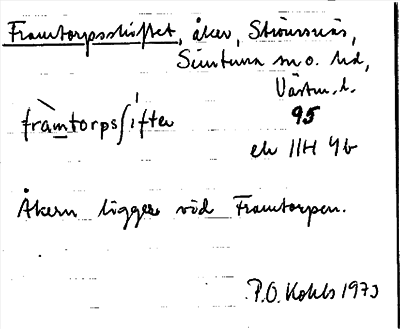 Framtorpsskiftet, åker, Strömsnäs,
Simtuna sn o. hd,
Västm. l.
95
framtorpsʃifter
ek 11H 4b
Åkern ligger vid Framtorpen.
P.O. Kohls 1973